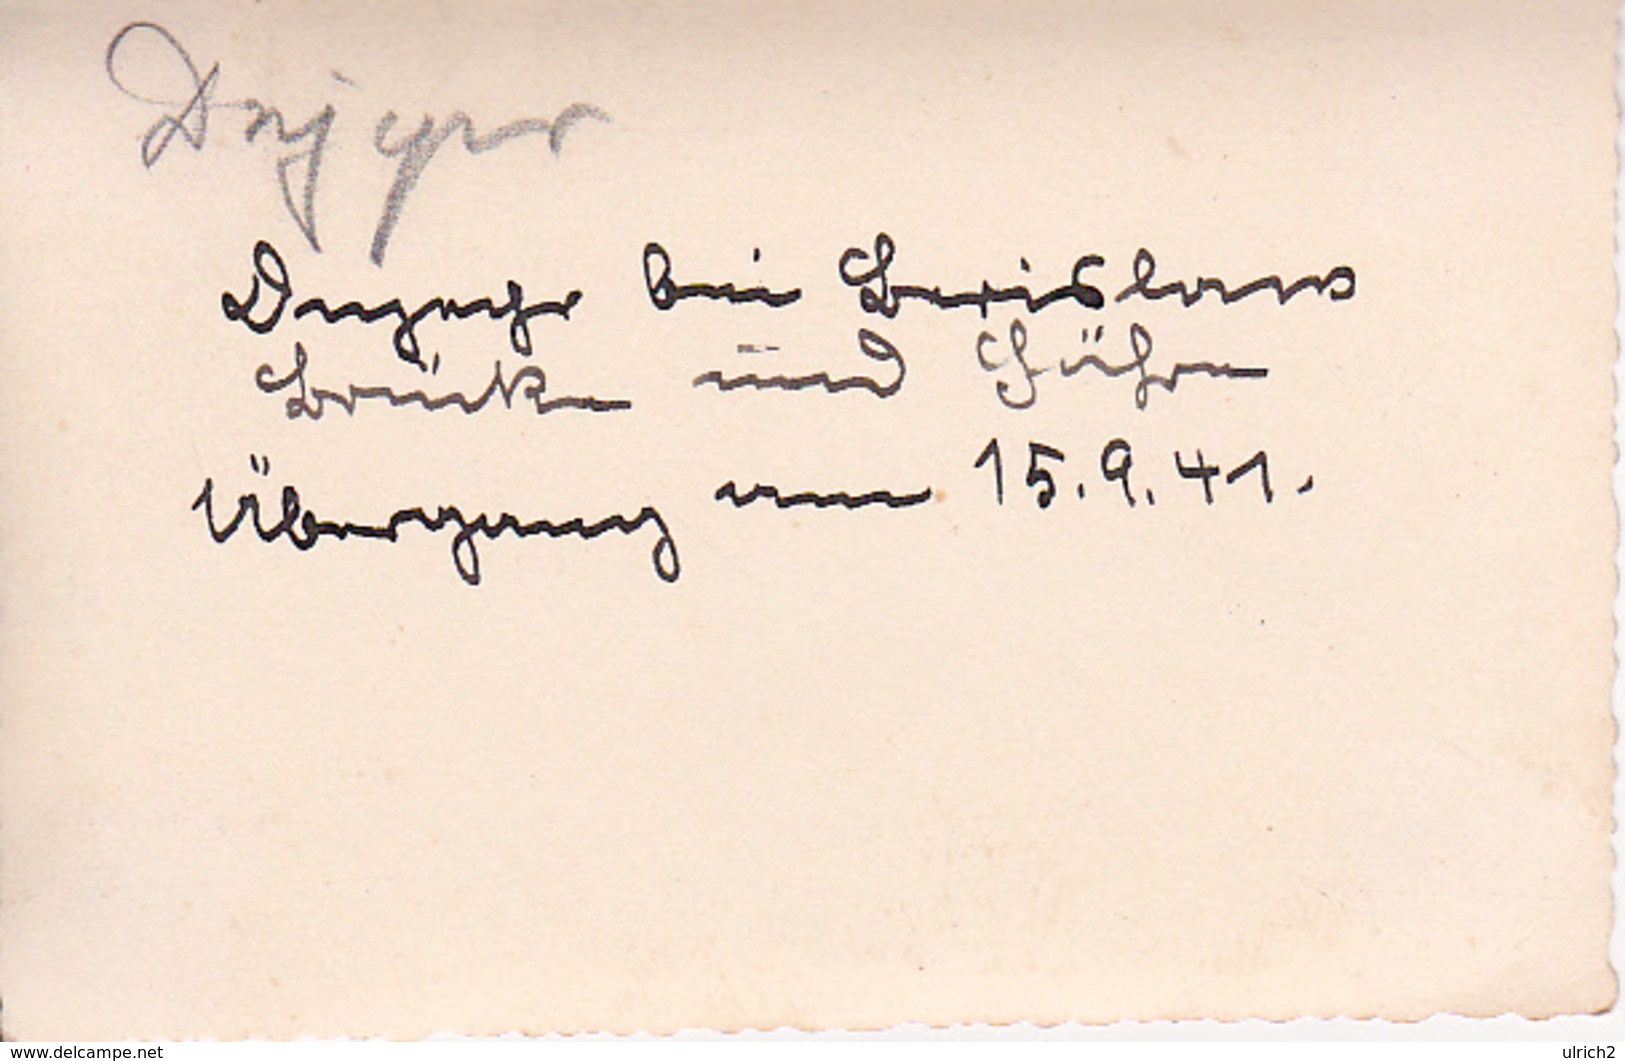 Dnjepr
Dnjepr bei Berislaw
Brücke und Fähre
Übergang am 15.9.41.
www.delcampe.net ulrich2